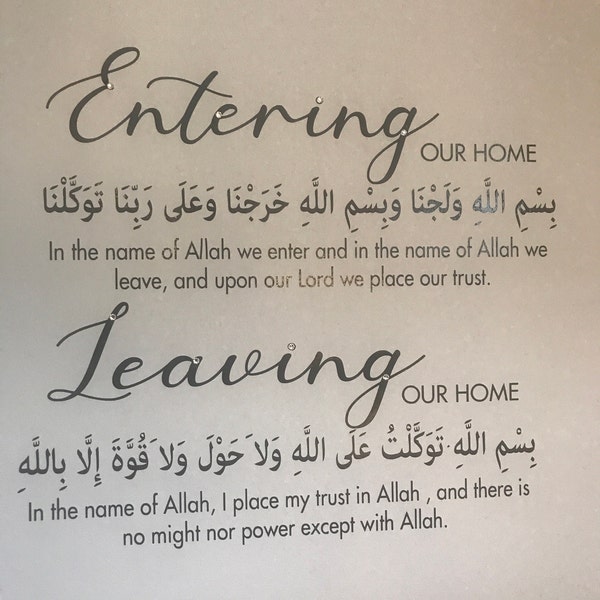 Entering
OUR HOME
بِسْمِ اللَّهِ وَلَجْنَا وَبِسْمِ اللَّهِ خَرَجْنَا وَعَلَى رَبِّنَا تَوَكَّلْنَا
In the name of Allah we enter and in the name of Allah we
leave, and upon our Lord we place our trust.
Leaving
OUR HOME
بِسْمِ اللَّهِ تَوَكَّلْتُ عَلَى اللَّهِ وَلاَ حَوْلَ وَلاَ قُوَّةَ إِلَّا بِاللَّهِ
In the name of Allah, I place my trust in Allah , and there is
no might nor power except with Allah.